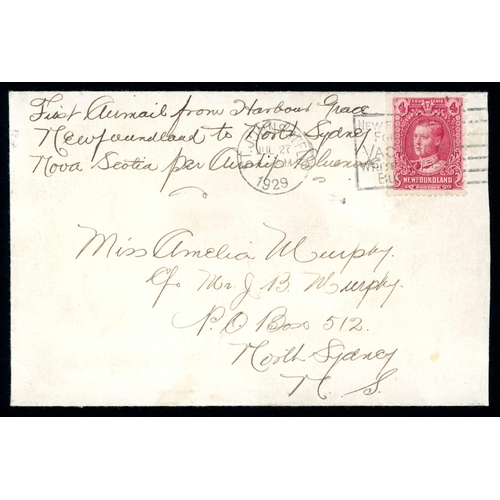 First Airmail from Harbour Grace
Newfoundland to North Sydney
Nova Scotia per Airship Bluenose
JUL 27
1929
4 4
NEWFOUNDLAND
Miss Amelia Murphy.
c/o Mr J. B. Murphy.
P.O Box 512.
North Sydney
N. S.